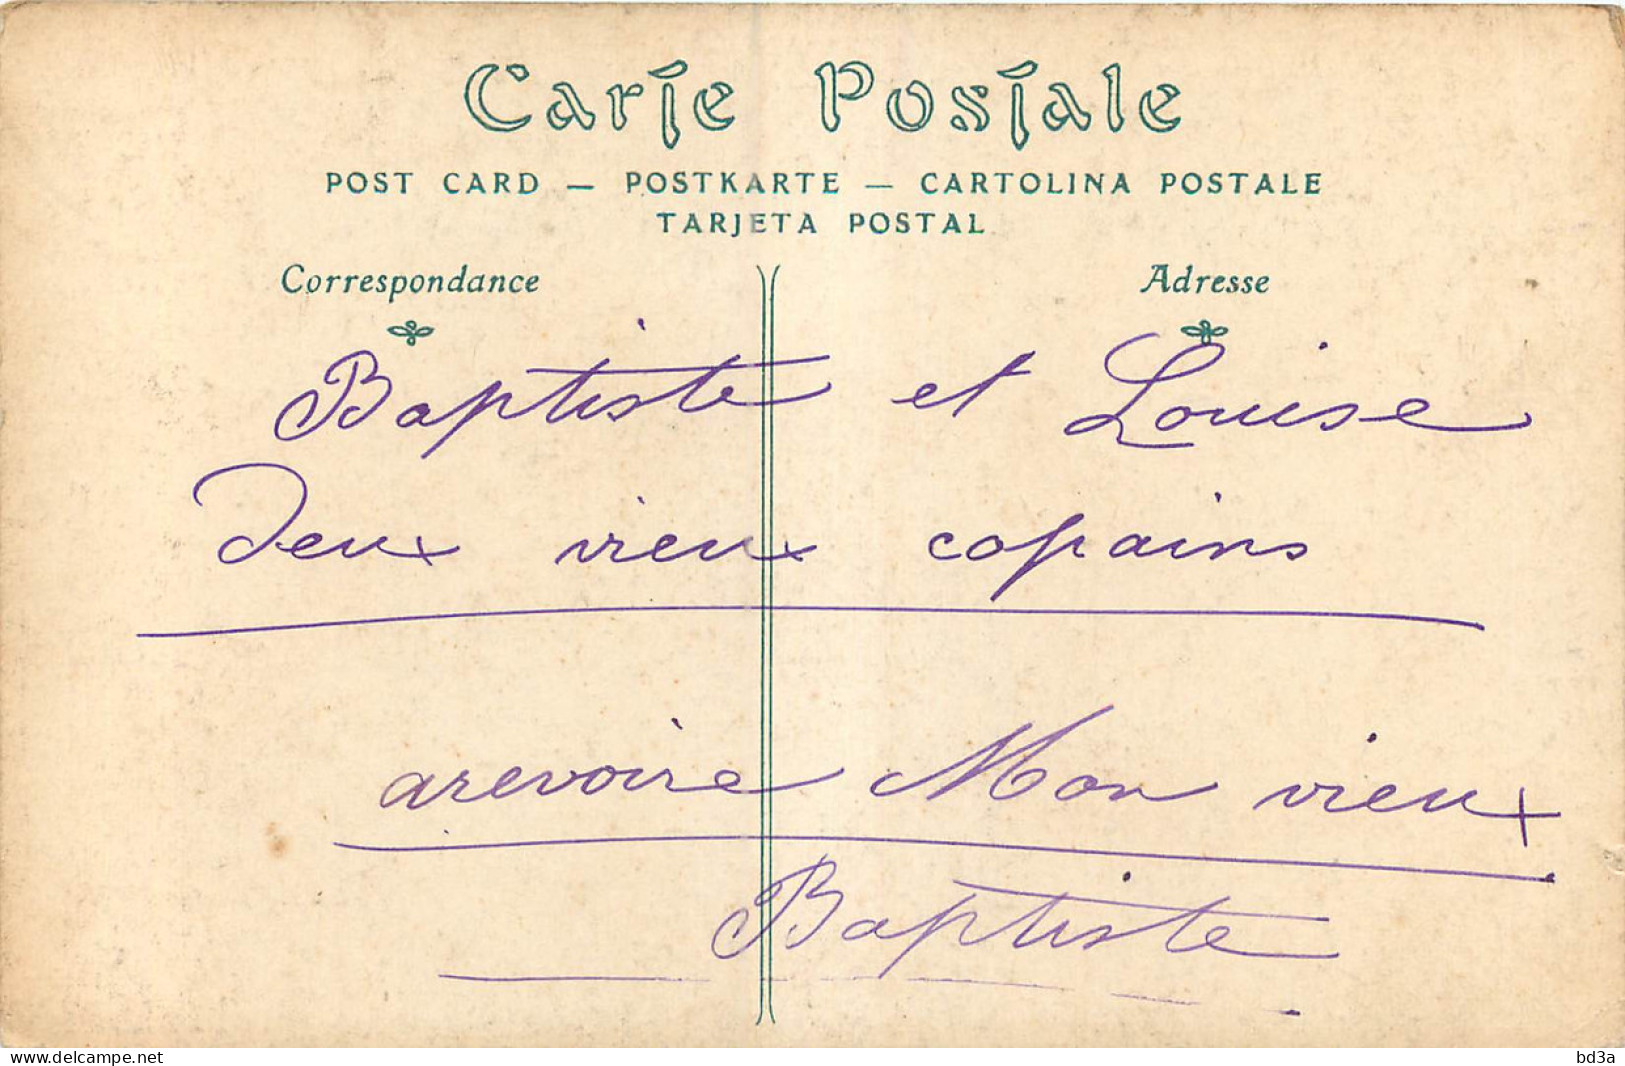 Carte Postale
POST CARD — POSTKARTE — CARTOLINA POSTALE
TARJETA POSTAL
Correspondance
Adresse
Baptiste et Louise
Deux vieux copains
arevoire Mon vieux
Baptiste
www.delcampe.net
bd3a